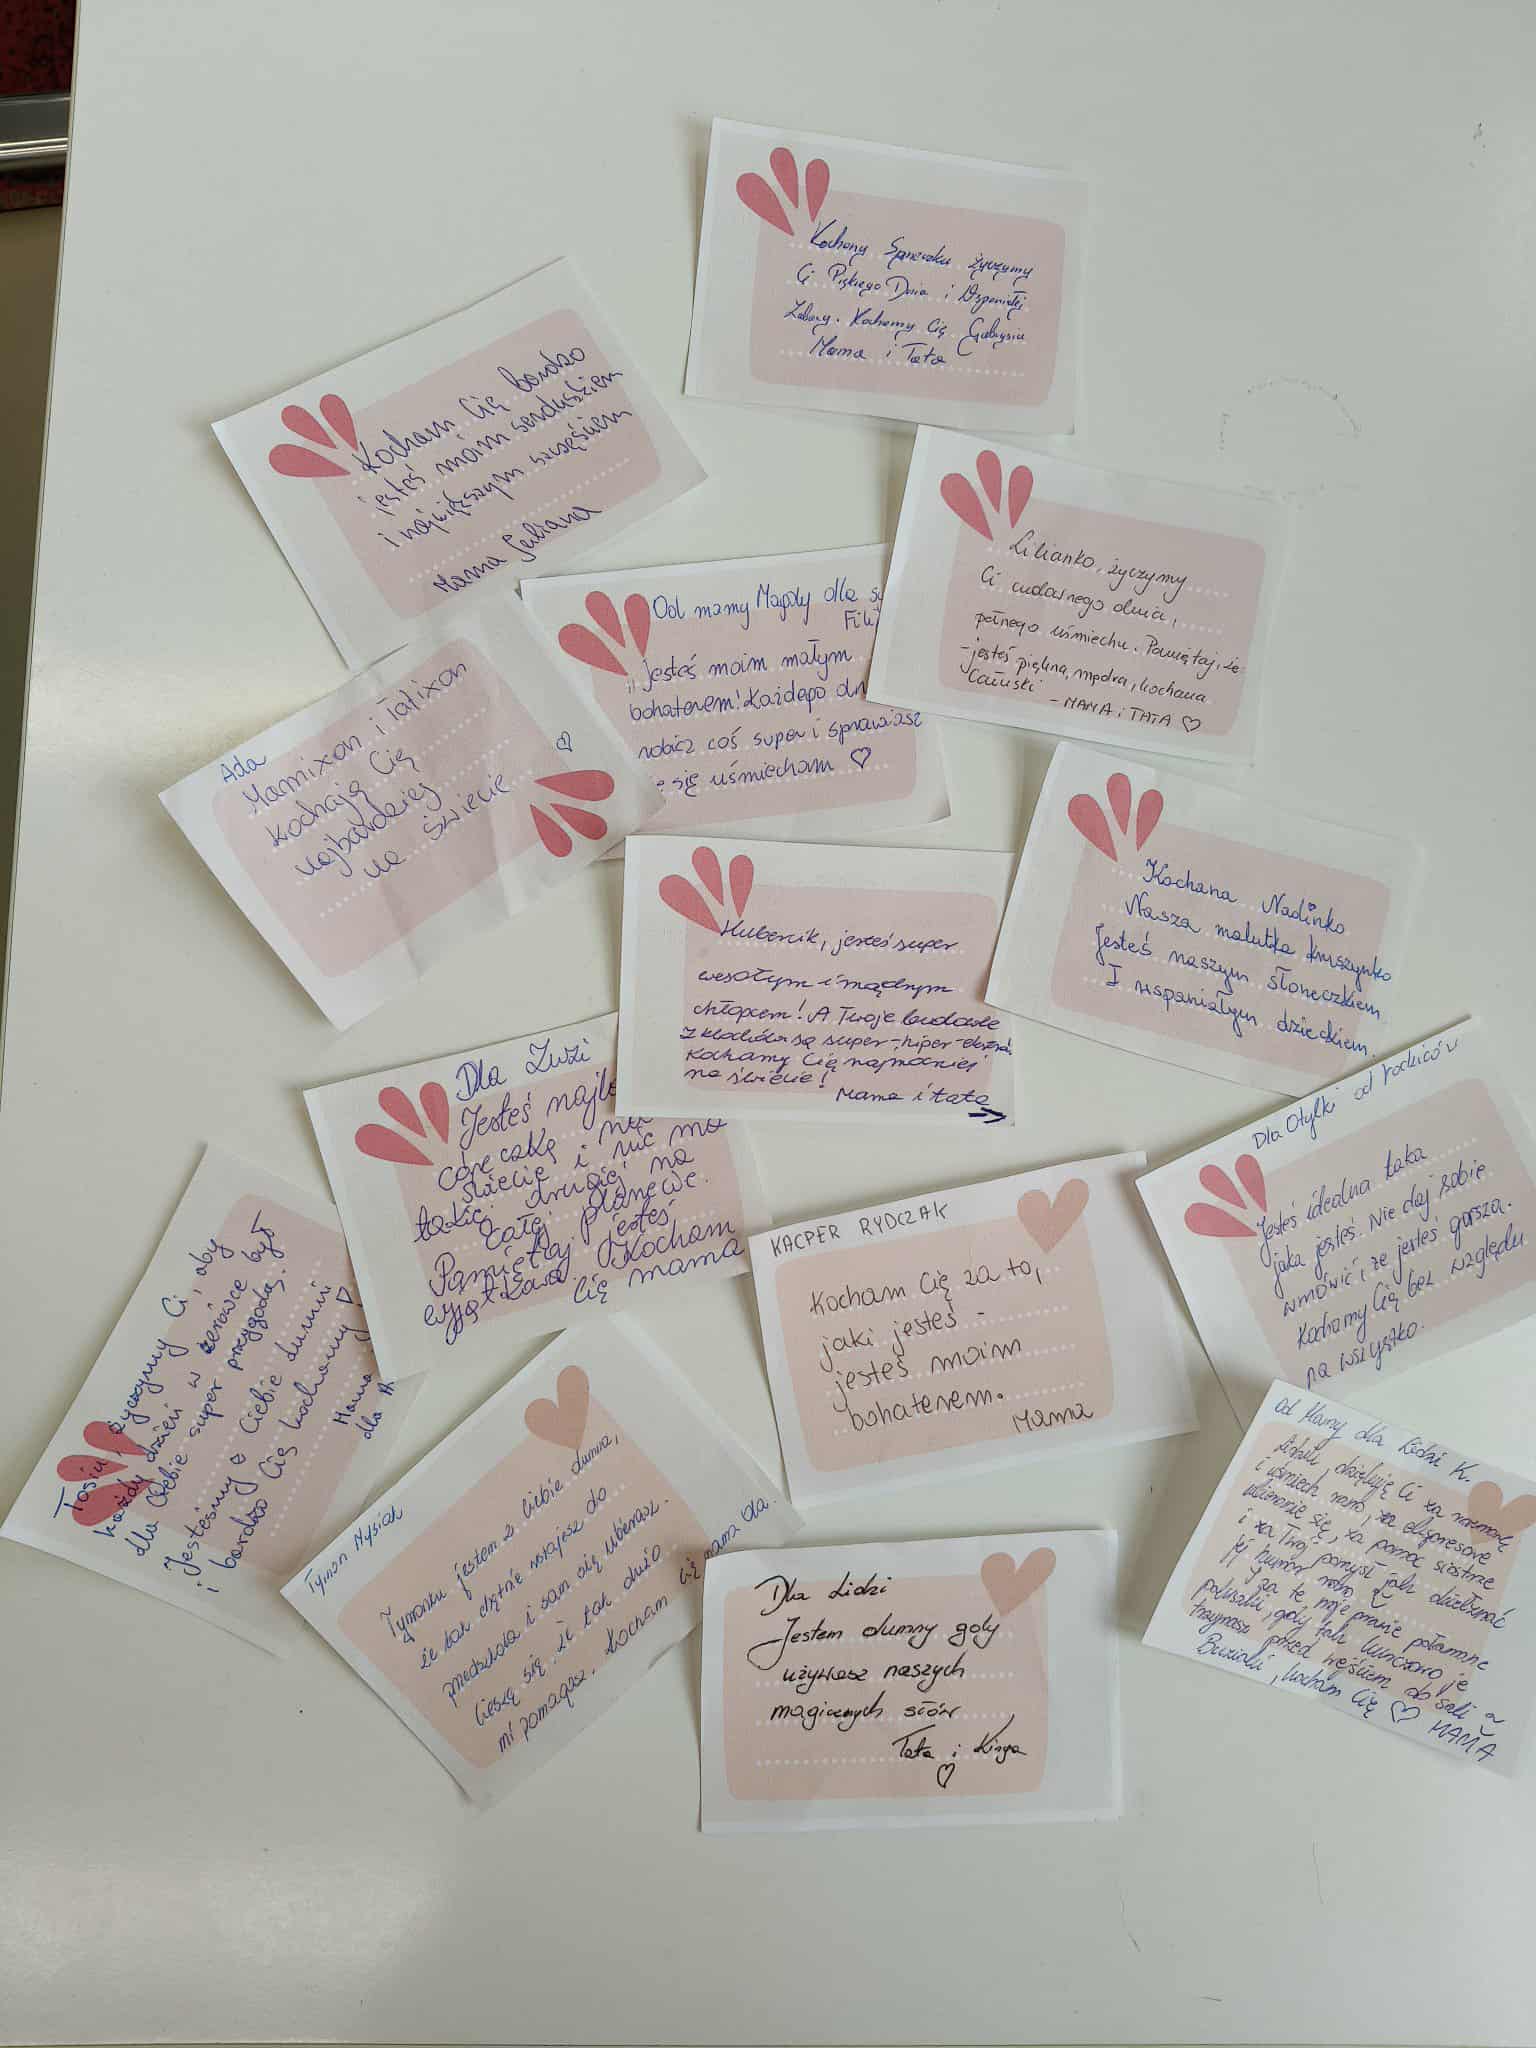 Kochany Syneczku życzymy
Ci Pięknego Dnia i Wspaniałej
Zabawy. Kochamy Cię Gabrysiu
Mama i Tata
Kocham Cię bardzo
jesteś moim serduszkiem
i największym szczęściem
Mama Juliana
Lilianko, życzymy
Ci cudownego dnia,
pełnego uśmiechu. Pamiętaj, że
- jesteś piękna, mądra, kochana
Całuski
- MAMA i TATA ♡
Od mamy Magdy dla
„Jesteś moim małym
bohaterem! Każdego
robisz coś super i sprawiasz
że się uśmiecham ♡
Ada
Mamixon i Tatixon
kochają Cię
najbardziej
na świecie
♡
Kochana Nadinko
Nasza malutka kruszynko
Jesteś naszym słoneczkiem
I wspaniałym dzieckiem.
Hubercik, jesteś super
wesołym i mądrym
chłopcem! A Twoje budowle
z klocków są super-hiper-
Kochamy Cię najmocniej
na świecie!
Mama i tata
Dla Zuzi
Jesteś
córeczką
świecie i nie ma
takiej drugiej na
całej planecie.
Pamiętaj jesteś
wyjątkowa. Kocham
Cię mama
Dla Otylki od rodziców
Jesteś idealna taka
jaka jesteś. Nie daj sobie
wmówić że jesteś gorsza.
Kochamy Cię bez względu
na wszystko.
KACPER RYDCZAK
Kocham Cię za to,
jaki jesteś -
jesteś moim
bohaterem.
Mama
Tosiu, życzymy Ci, aby
każdy dzień w zerówce był
dla Ciebie super przygodą.
Jesteśmy z Ciebie dumni
i bardzo Cię kochamy ♡
Mama
dla
Tymon Mysiak
Tymonku jestem z Ciebie dumna,
że tak chętnie wstajesz do
przedszkola i sam się ubierasz.
Cieszę się, że tak dużo
mi pomagasz. Kocham Cię mama
Dla Lidzi
Jestem dumny gdy
używasz naszych
magicznych słów
Tata i Kinga
♡
od Mamy dla Lidzi K.
dziękuję Ci za rozmowę
i uśmiech rano, za ekspresowe
ubieranie się, za pomoc siostrze
i za Twój pomysł jak
humor rano
za te moje prawie połamane
paluszki, gdy tak
trzymasz przed wejściem do sali
Buziaki, kocham Cię ♡ MAMA